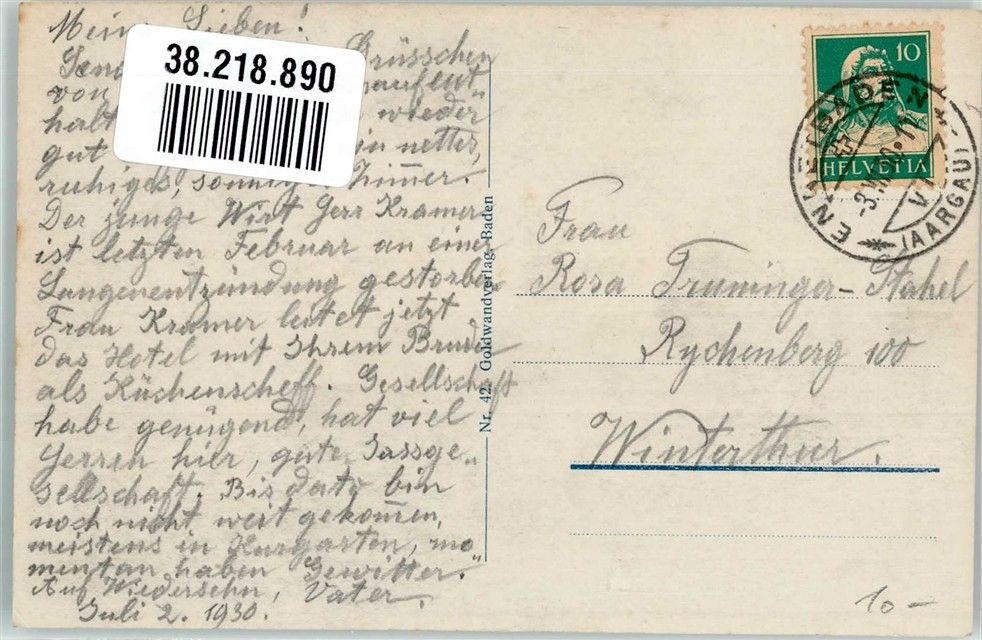 Meine Lieben!
Grüsschen
von
wieder
gut netter,
ruhiges, sonniges Zimmer.
Der junge Wirt Herr Kramer
ist letzten Februar an einer
Lungenentzündung gestorben.
Frau Kramer leitet jetzt
das Hotel mit Ihrem Bruder
als Küchenscheff. Gesellschaft
habe genügend, hat viel
Herren hier, gute Jassge„
sellschaft. Bis dato bin
noch nicht weit gekom̅en,
meistens in Kurgarten, mo
mentan haben Gewitter."
Auf Wiedersehn, Vater.
Juli 2. 1930.
38.218.890
Nr. 42. Goldwandverlag Baden
10
HELVETIA
ENNETBADEN
(AARGAU)
Frau
Rosa Truninger-Stahel
Rychenberg 100
Winterthur.
10 -